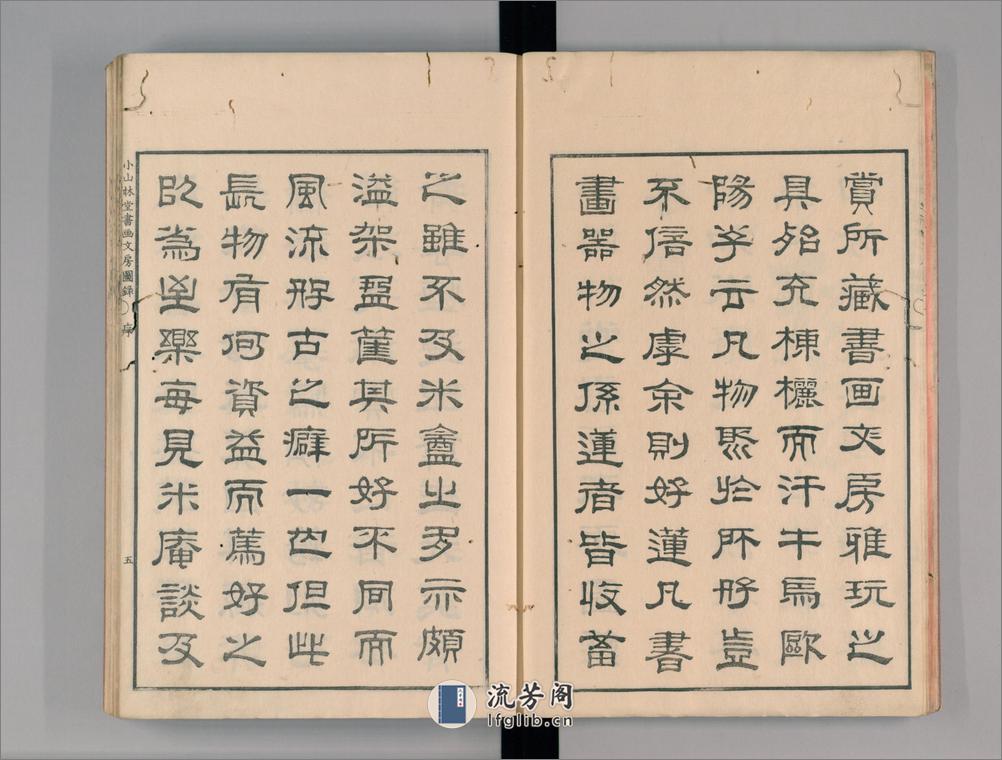 賞所藏書画文房雅玩之
具殆充棟欐而汗牛馬歐
陽子云凡物聚於所好豈
不信然虖余則好蓮凡書
畫器物之係蓮者皆收蓄
之雖不及米盦之多亦頗
溢架盈篋其所好不同而
風流好古之癖一也但此
長物有何資益而篤好之
以為至樂每見米庵談及
小山林堂書画文房圖錄 序 五
流芳阁
lfglib.cn